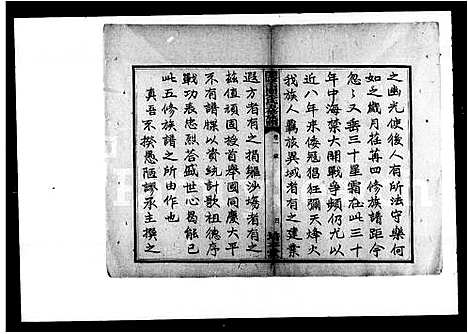 之幽光使後人有所法守樂何
如之歲月荏苒四修族譜距今
忽々又垂三十星霜在此三十
年中海禁大開戰爭頻仍尤以
近八年來倭寇猖狂彌天烽火
我族人羈旅異域者有之建業
遐方者有之捐軀沙場者有之
茲值頑固投首舉國同慶太平
不有譜牒以資統計歌祖德序
戰功表忠烈若諸先世曷能已
此五修族譜之所由作也
真吾不揆愚陋謬承主撰之